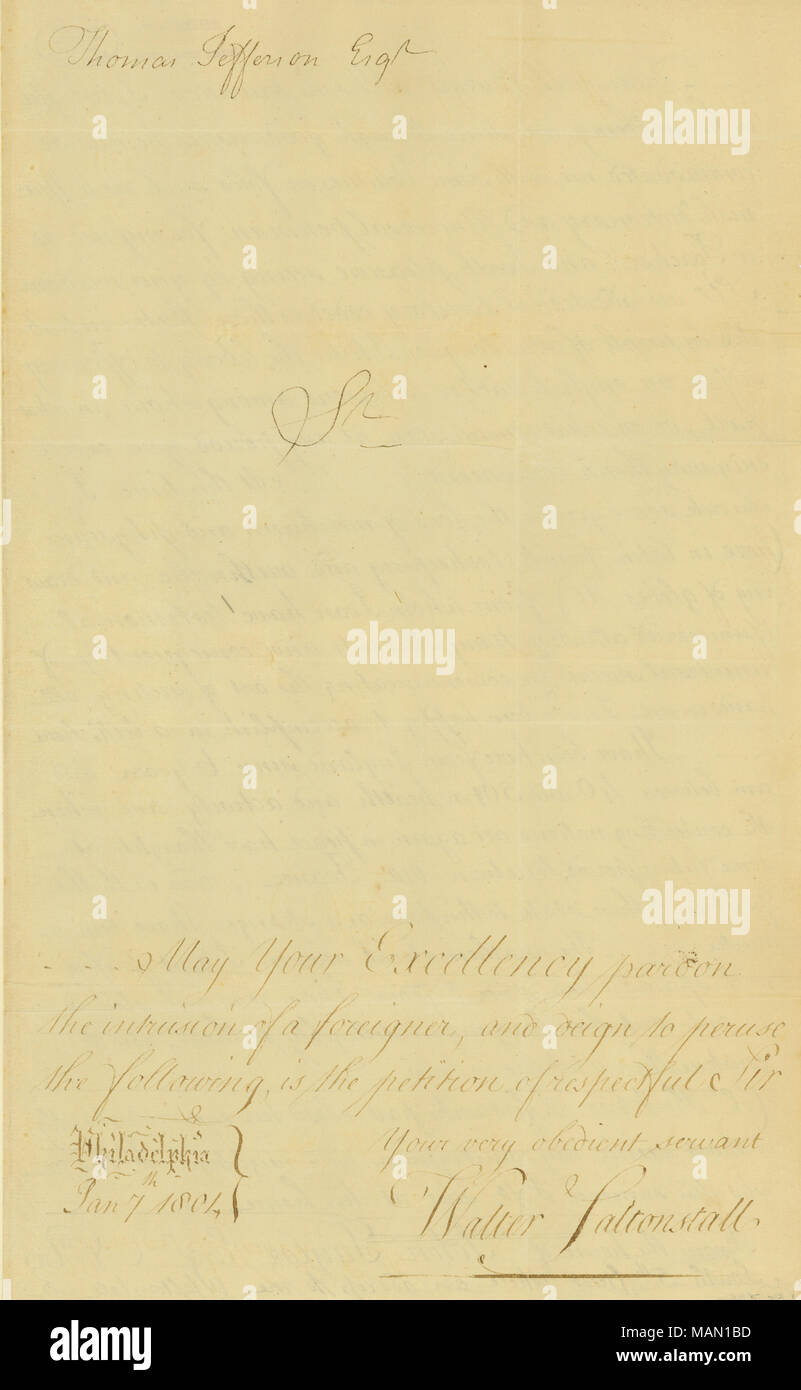 Thomas Jefferson Esqr
Sr
May Your Excellency pardon
the intrusion of a foreigner, and deign to peruse
the following, is the petition of respectful Sir
Your very obedient servant
Walter Saltonstall
Philadelphia
Jan 7th 1804
alamy
alamy
alamy
alamy
Image ID: MAN1BD
www.alamy.com